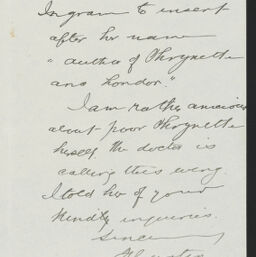 Ingram to insert
after her name
"author of Phrynette
and London."
I am rather anxious
about poor Phrynette
herself. The doctor is
calling this evng.
I told her of your
kindly inquiries.